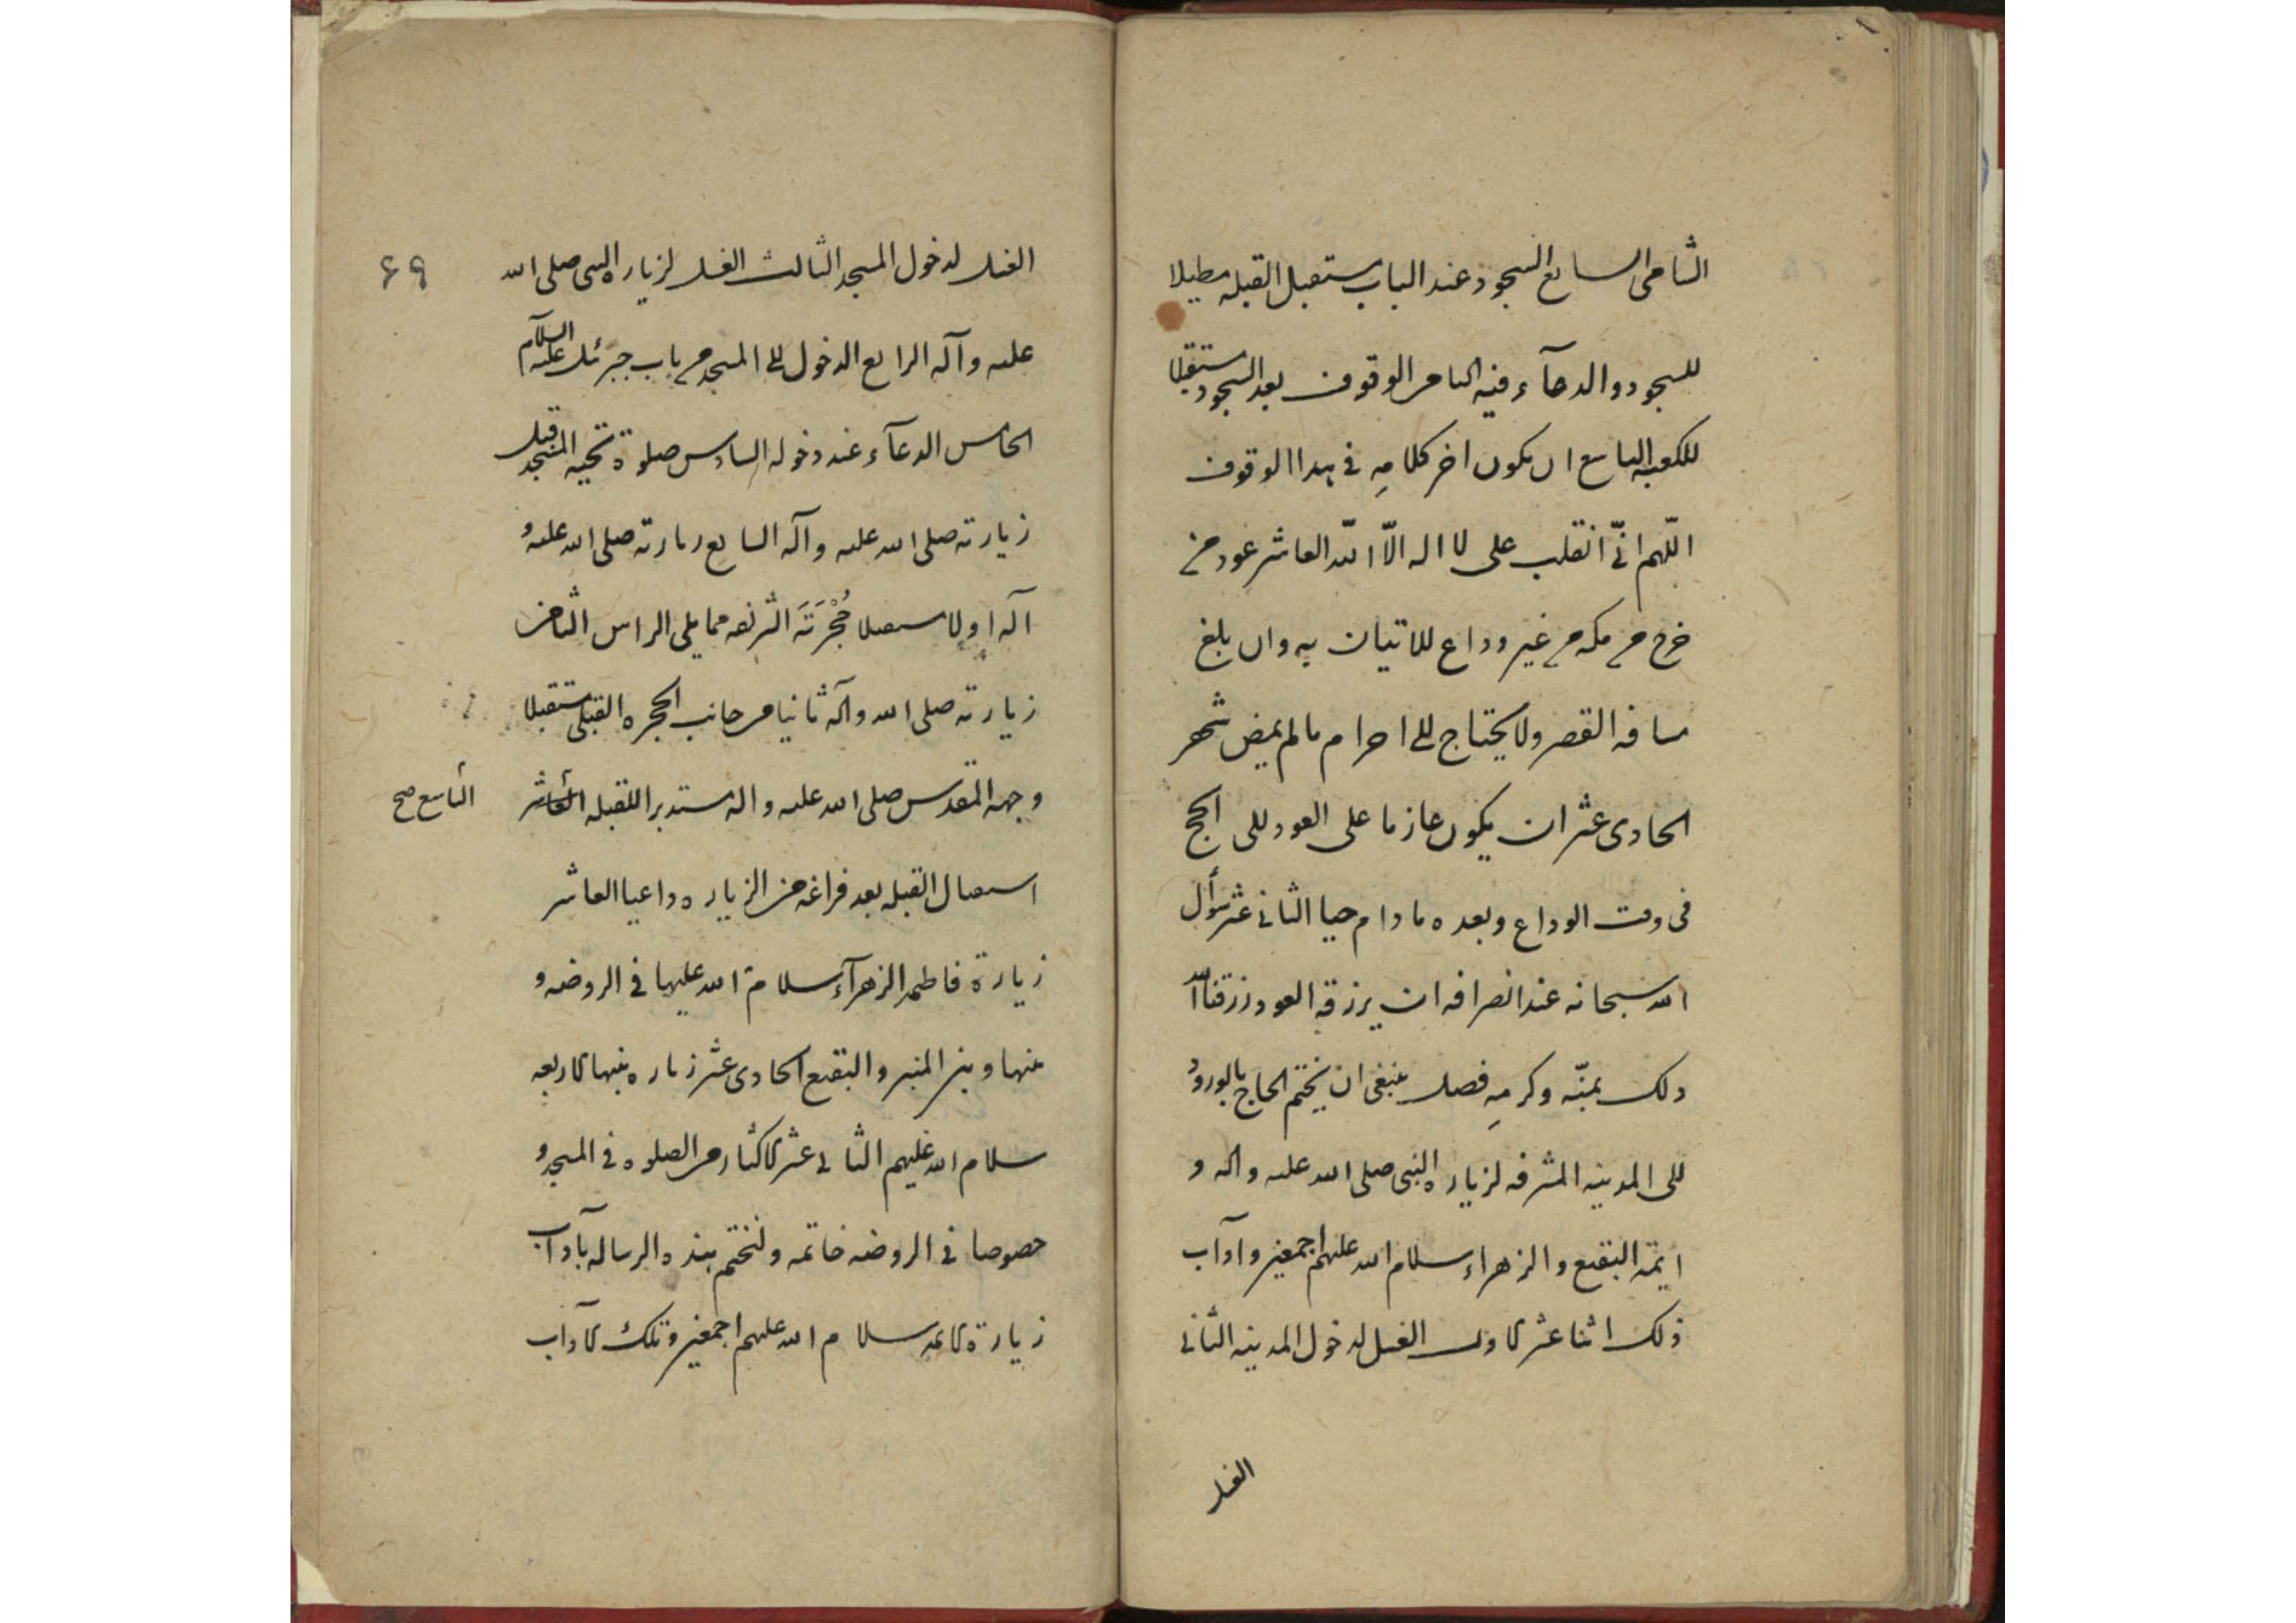 الشامى السابع السجود عند الباب مستقبل القبله مطيلا
للسجود والدعآء فيه الثامن الوقوف بعد السجود مستقبلا
للكعبه التاسع ان يكون اخر كلامهِ فى هذا الوقوف
اللّهم انّى انقلب على لا اله الّا اللّه العاشر عود من
خرج من مكه من غير وداع للاتيان به وان بلغ
مسافه القصر ولا يحتاج الى احرام ما لم يمض شهر
الحادى عشر ان يكون عازما على العود الى الحج
فى وقت الوداع وبعده ما دام حيا الثانى عشر سؤأل
الله سبحانه عند انصرافه ان يرزقه العود رزقنا الله
ذلك بمنّه وكرمهِ فصل ينبغى ان يختم الحاج بالورود
الى المدينه المشرفه لزياره النبى صلى الله عليه واله و
ايمة البقيع والزهراء سلام الله عليهم اجمعين وآدآب
ذلك اثنا عشر الاول الغسل لدخول المدينه الثانى
الغسل
٦٩
الغسل لدخول المسجد الثالث الغسل لزياره النبى صلى الله
عليه وآله الرابع الدخول الى المسجد من باب جبرئيل عليه السلآم
الخامس الدعآء عند دخوله السادس صلوة تحيه المسجد قبل
زيارته صلى الله عليه وآله السابع زيارته صلى الله عليه و
آله اولا مستقبلا حُجْرَتَه الشريفه مما يلى الراس الثامن
زيارته صلى الله وآله ثانيا من جانب الحجره القبلى مستقبلا
وجهه المقدس صلى الله عليه واله مستدبرا للقبله العاشر
التاسع صح
استقبال القبله بعد فراغه من الزياره داعيا العاشر
زيارة فاطمه الزهرآء سلام الله عليها فى الروضه و
بيتها وبين المنبر والبقيع الحادى عشر زياره بنيها الاربعه
سلام الله عليهم الثانى عشر الاكثار من الصلوه فى المسجد و
خصوصا فى الروضه خاتمه ولنختم هذه الرساله بآدآب
زيارة الائمه سلام الله عليهم اجمعين وتلك الآداب